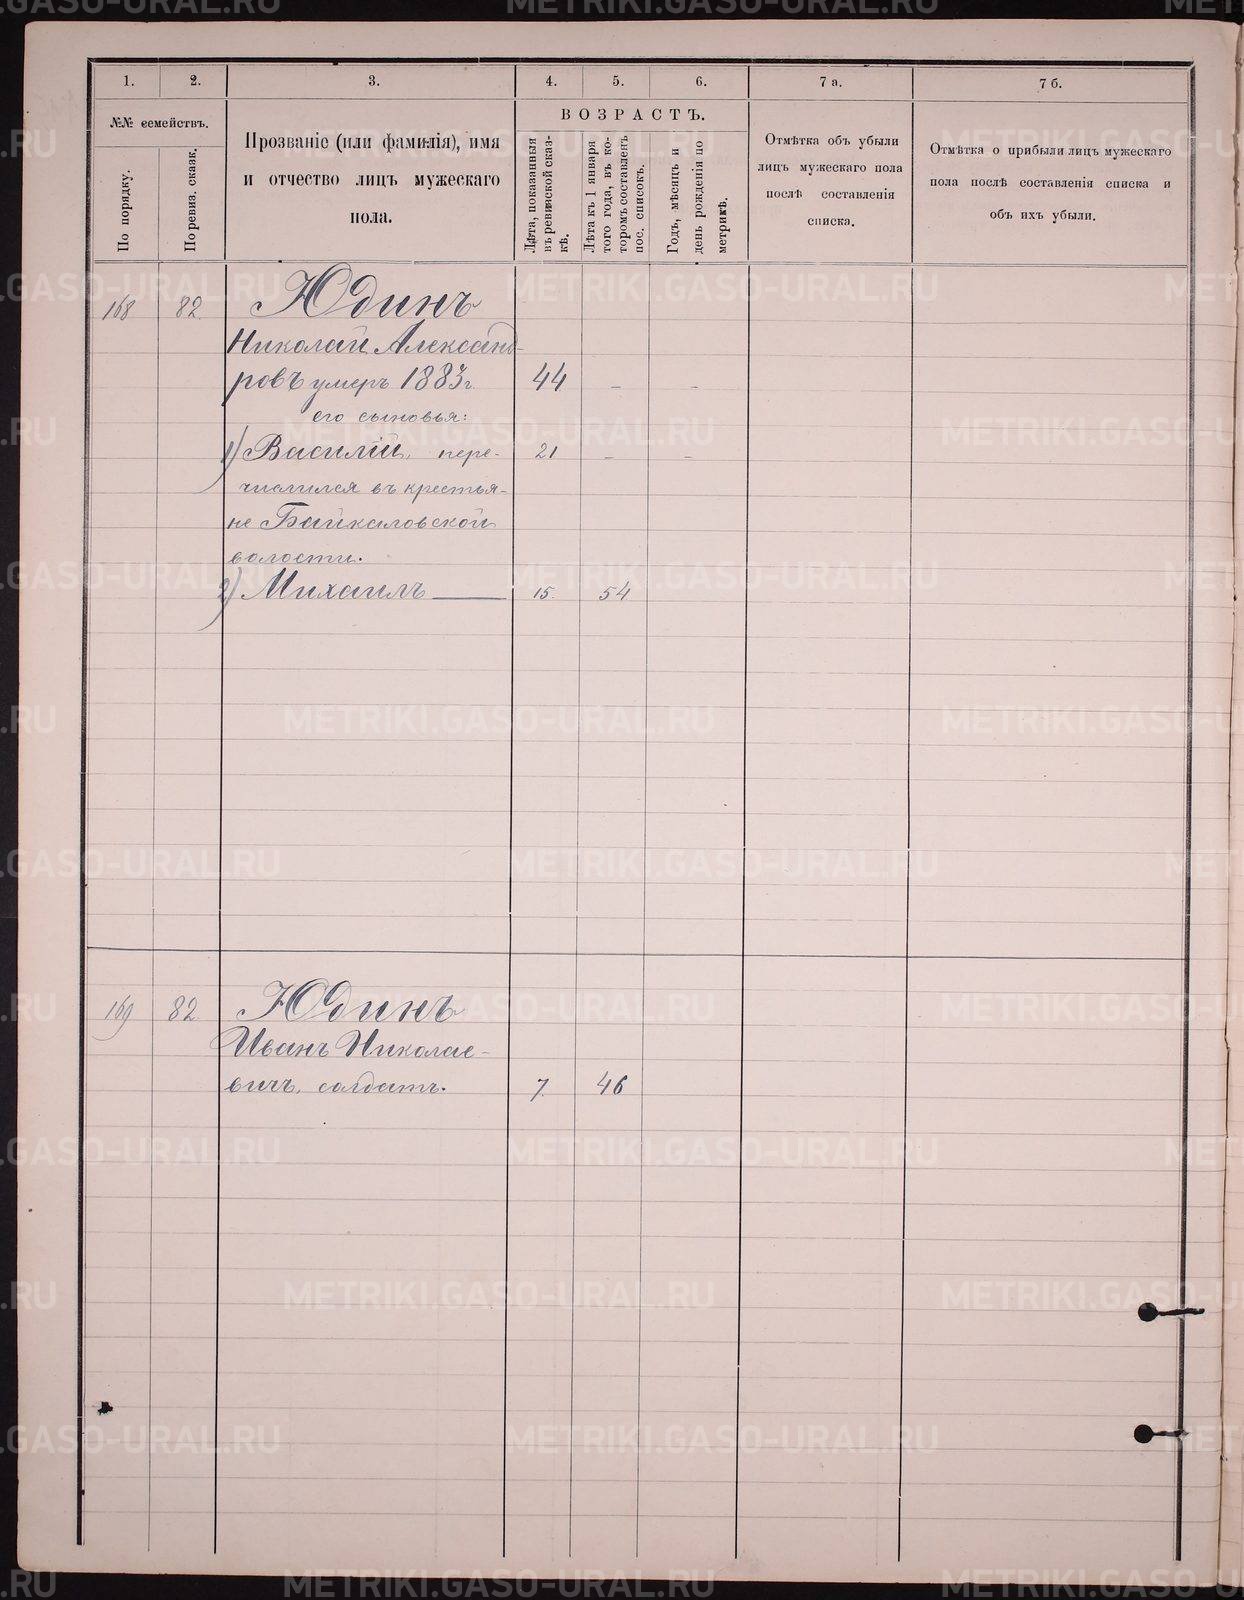 1. 2. 3. 4. 5. 6. 7 а. 7 б.
№№ семействъ.
По порядку.
По ревиз. сказк.
Прозваніе (или фамилія), имя
и отчество лицъ мужескаго
пола.
ВОЗРАСТЪ.
Лѣта, показанныя
въ ревизской сказ-
кѣ.
Лѣта къ 1 января
того года, въ ко-
торомъ составленъ
пос. списокъ.
Годъ, мѣсяцъ и
день рожденія по
метрикѣ.
Отмѣтка объ убыли
лицъ мужескаго пола
послѣ составленія
списка.
Отмѣтка о прибыли лицъ мужескаго
пола послѣ составленія списка и
объ ихъ убыли.
168 82. Юдинъ
Николай Александ-
ровъ умеръ 1883 г. 44 - -
его сыновья:
1) Василій, пере- 21 - -
числился въ крестья-
не Байкаловской
волости.
2) Михаилъ — 15. 54
169 82. Юдинъ
Иванъ Николае-
вичъ, солдатъ. 7. 46
METRIKI.GASO-URAL.RU